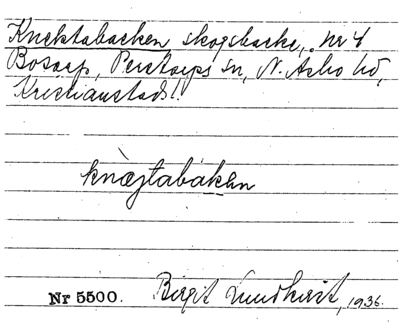 Knektabacken skogsbacke, nr 4
Bosarp, Perstorps sn, N. Åsbo hd,
Kristianstads l.
knæjtabakən
Nr 5500. Birgit Lundkvist, 1936.